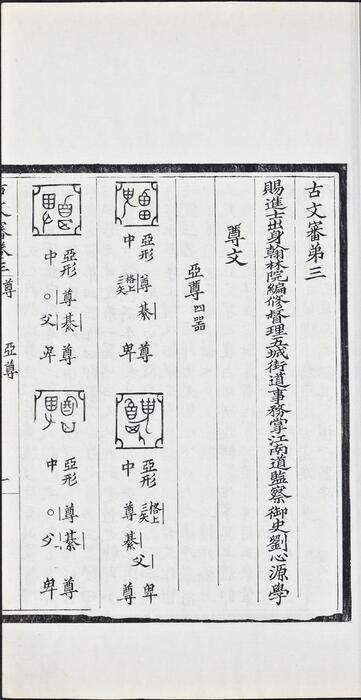 古文審第三
賜進士出身翰林院編修督理五城街道事務掌江南道監察御史劉心源學
尊文
亞尊四器
亞形 尊綦 尊
中 格上三矢 卑
亞形 格上三矢 卑
中 尊綦父 尊
亞形 尊綦 尊
中 ○父 卑
亞形 尊綦 尊
中 ○父 卑
古文審卷三 尊 亞尊 一